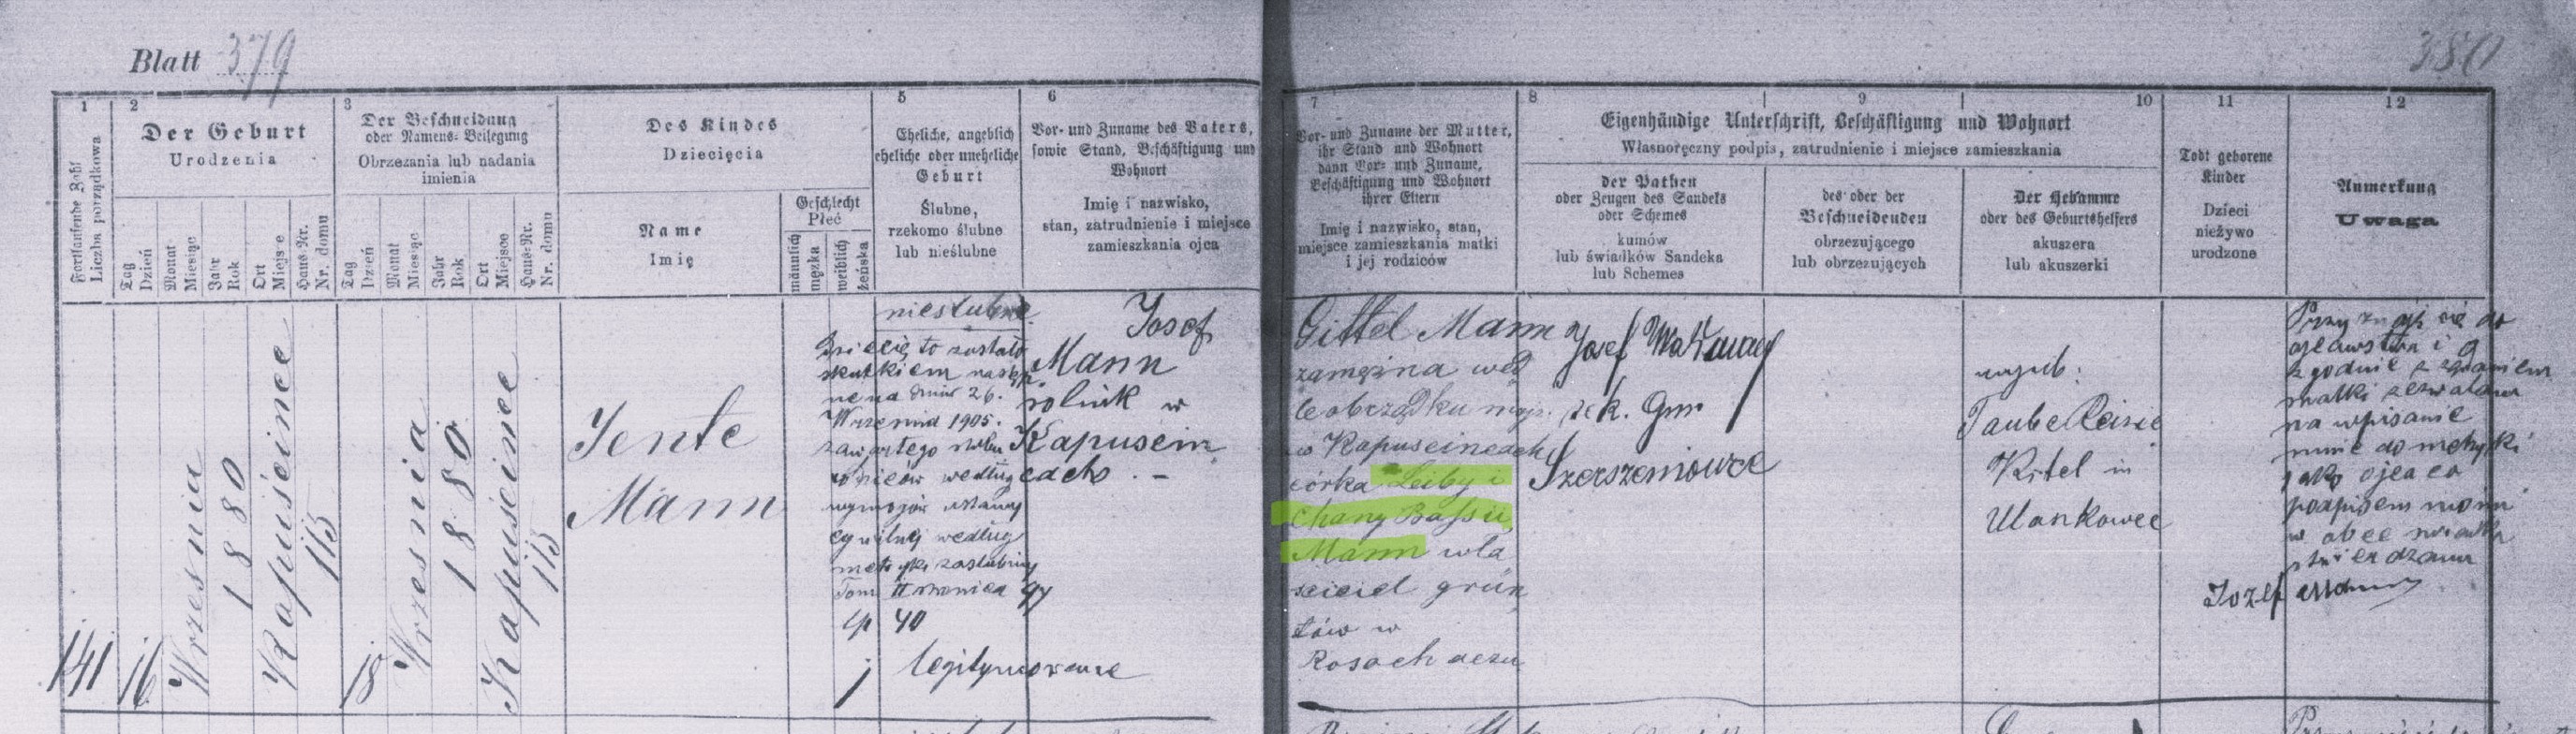 Blatt 379
380
1
2
3
5
6
7
8
9
10
11
12
Fortlaufende Zahl
Liczba porządkowa
Der Geburt
Urodzenia
Tag
Dzień
Monat
Miesiąc
Jahr
Rok
Ort
Miejsce
Haus-Nr.
Nr. domu
Der Beschneidung
oder Namens-Beilegung
Obrzezania lub nadania
imienia
Tag
Dzień
Monat
Miesiąc
Jahr
Rok
Ort
Miejsce
Haus-Nr.
Nr. domu
Des Kindes
Dziecięcia
Name
Imię
Geschlecht
Płeć
männlich
męzka
weiblich
żeńska
Eheliche, angeblich
eheliche oder uneheliche
Geburt
Ślubne,
rzekomo ślubne
lub nieślubne
Vor- und Zuname des Vaters,
sowie Stand, Beschäftigung und
Wohnort
Imię i nazwisko,
stan, zatrudnienie i miejsce
zamieszkania ojca
Vor- und Zuname der Mutter,
ihr Stand und Wohnort
dann Vor- und Zuname,
Beschäftigung und Wohnort
ihrer Eltern
Imię i nazwisko, stan,
miejsce zamieszkania matki
i jej rodziców
Eigenhändige Unterschrift, Beschäftigung und Wohnort
Własnoręczny podpis, zatrudnienie i miejsce zamieszkania
der Pathen
oder Zeugen des Sandeks
oder Schemes
kumów
lub świadków Sandeka
lub Schemes
des oder der
Beschneidenden
obrzezującego
lub obrzezujących
Der Hebamme
oder des Geburtshelfers
akuszera
lub akuszerki
Todt geborene
Kinder
Dzieci
nieżywo
urodzone
Anmerkung
Uwaga
141
16
Września
1880
Kapuścince
113
18
Września
1880
Kapuścince
113
Jente
Mann
nieślubne
Dziecię to zostało
skutkiem następ.
nena dniu 26.
Wrzesnia 1905.
zawartego ślubu
rodziców według
wymogów ustawy
cywilnej według
metryki zaślubin
Tom II stronica 97
lp 40
legitymowane
1
Josef
Mann
rolnik w
Kapuscin
cach. -
Gittel Mann
zamężna wed
le obrządku mojż.
w Kapuscincach
córka Leiby i
Chany Bassii
Mann wła
sciciel grun
tów w
Rosochaczu
Josef
sek. Gm
Szerszeniowce
egzb:
Taube Reisie
Kitel in
Ulaskowce
Przyznaję się do
ojcowstwa i
zgodnie z żądaniem
matki zezwalam
na wpisanie
mnie do metryki
jako ojca co
podpisem moim
w obec świadka
stwierdzam
Jozef Mann